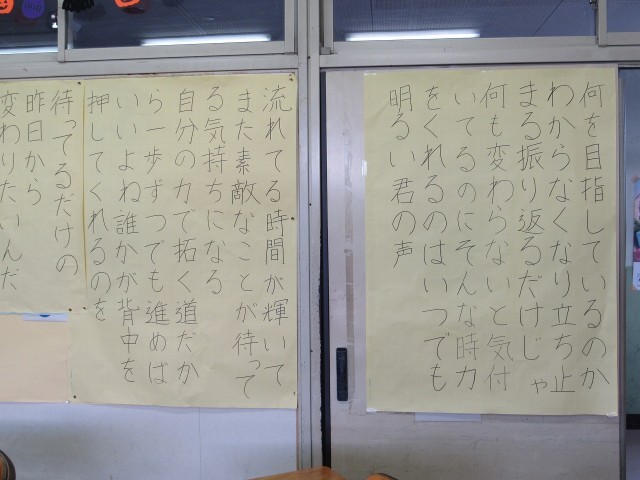 何を目指しているのか
わからなくなり立ち止
まる振り返るだけじゃ
何も変わらないと気付
いてるのにそんな時力
をくれるのはいつでも
明るい君の声
流れてる時間が輝いて
また素敵なことが待って
る気持ちになる
自分の力で拓く道だか
ら一歩ずつでも進めば
いいよね誰かが背中を
押してくれるのを
待ってるだけの
昨日から
変わりたいんだ